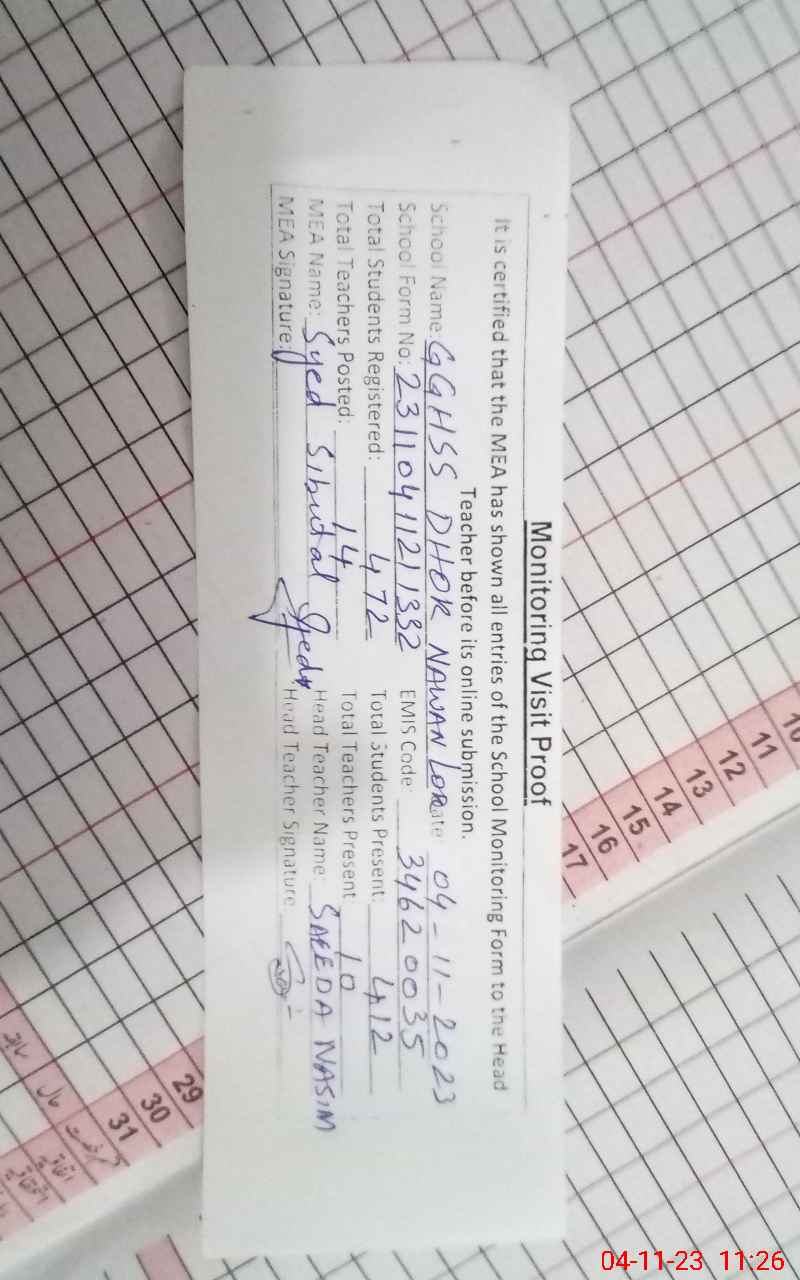 Monitoring Visit Proof
It is certified that the MEA has shown all entries of the School Monitoring Form to the Head
Teacher before its online submission.
School Name: GGHSS DHOR NAWAN LOR Date: 04-11-2023
School Form No: 23110411211392 EMIS Code: 34620035
Total Students Registered: 472 Total Students Present: 412
Total Teachers Posted: 14 Total Teachers Present 10
MEA Name: Syed Sibutal Head Teacher Name: SAEEDA NASIM
MEA Signature: Head Teacher Signature
10
11
12
13
14
15
16
17
29
30
31
04-11-23 11:26